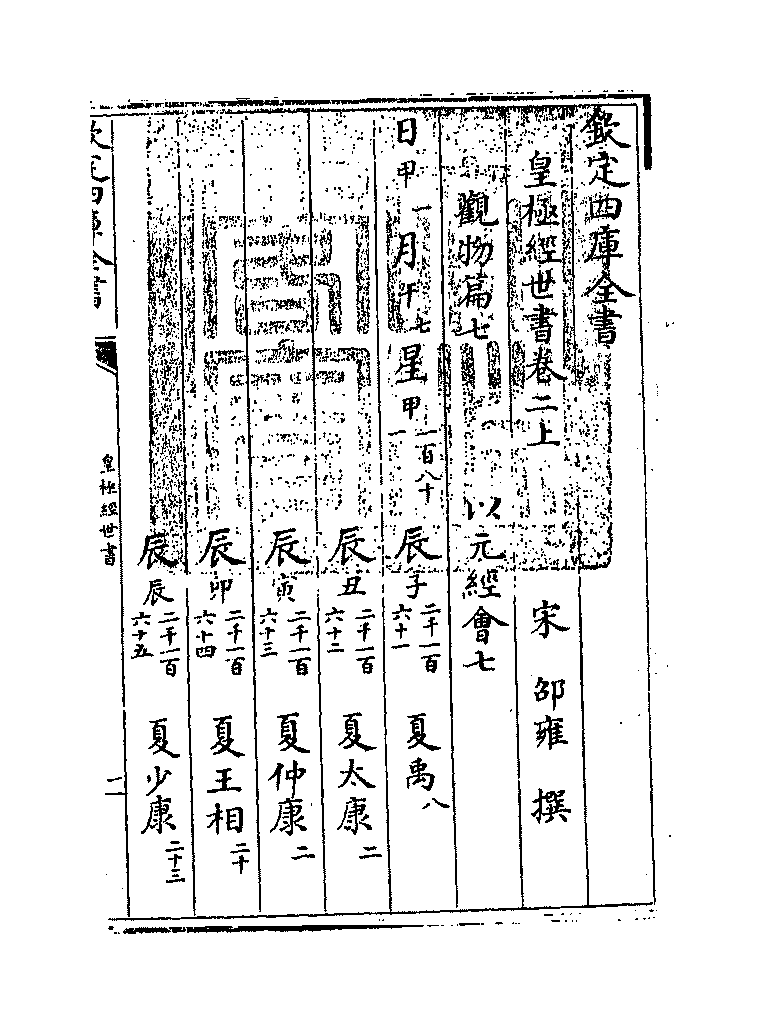 欽定四庫全書
皇極經世書卷二上
宋 邵雍 撰
觀物篇七 以元經會七
日甲一月午七星甲一百八十一 辰子二千一百六十一 夏禹八
辰丑二千一百六十二 夏太康二
辰寅二千一百六十三 夏仲康二
辰卯二千一百六十四 夏王相二十
辰辰二千一百六十五 夏少康二十三
欽定四庫全書
皇極經世書